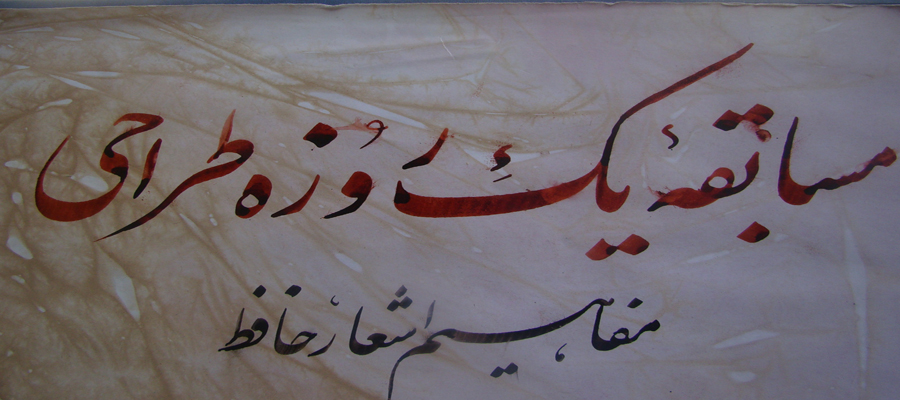 مسابقهٔ یک روزه طراحی
مفاهیم اشعار حافظ